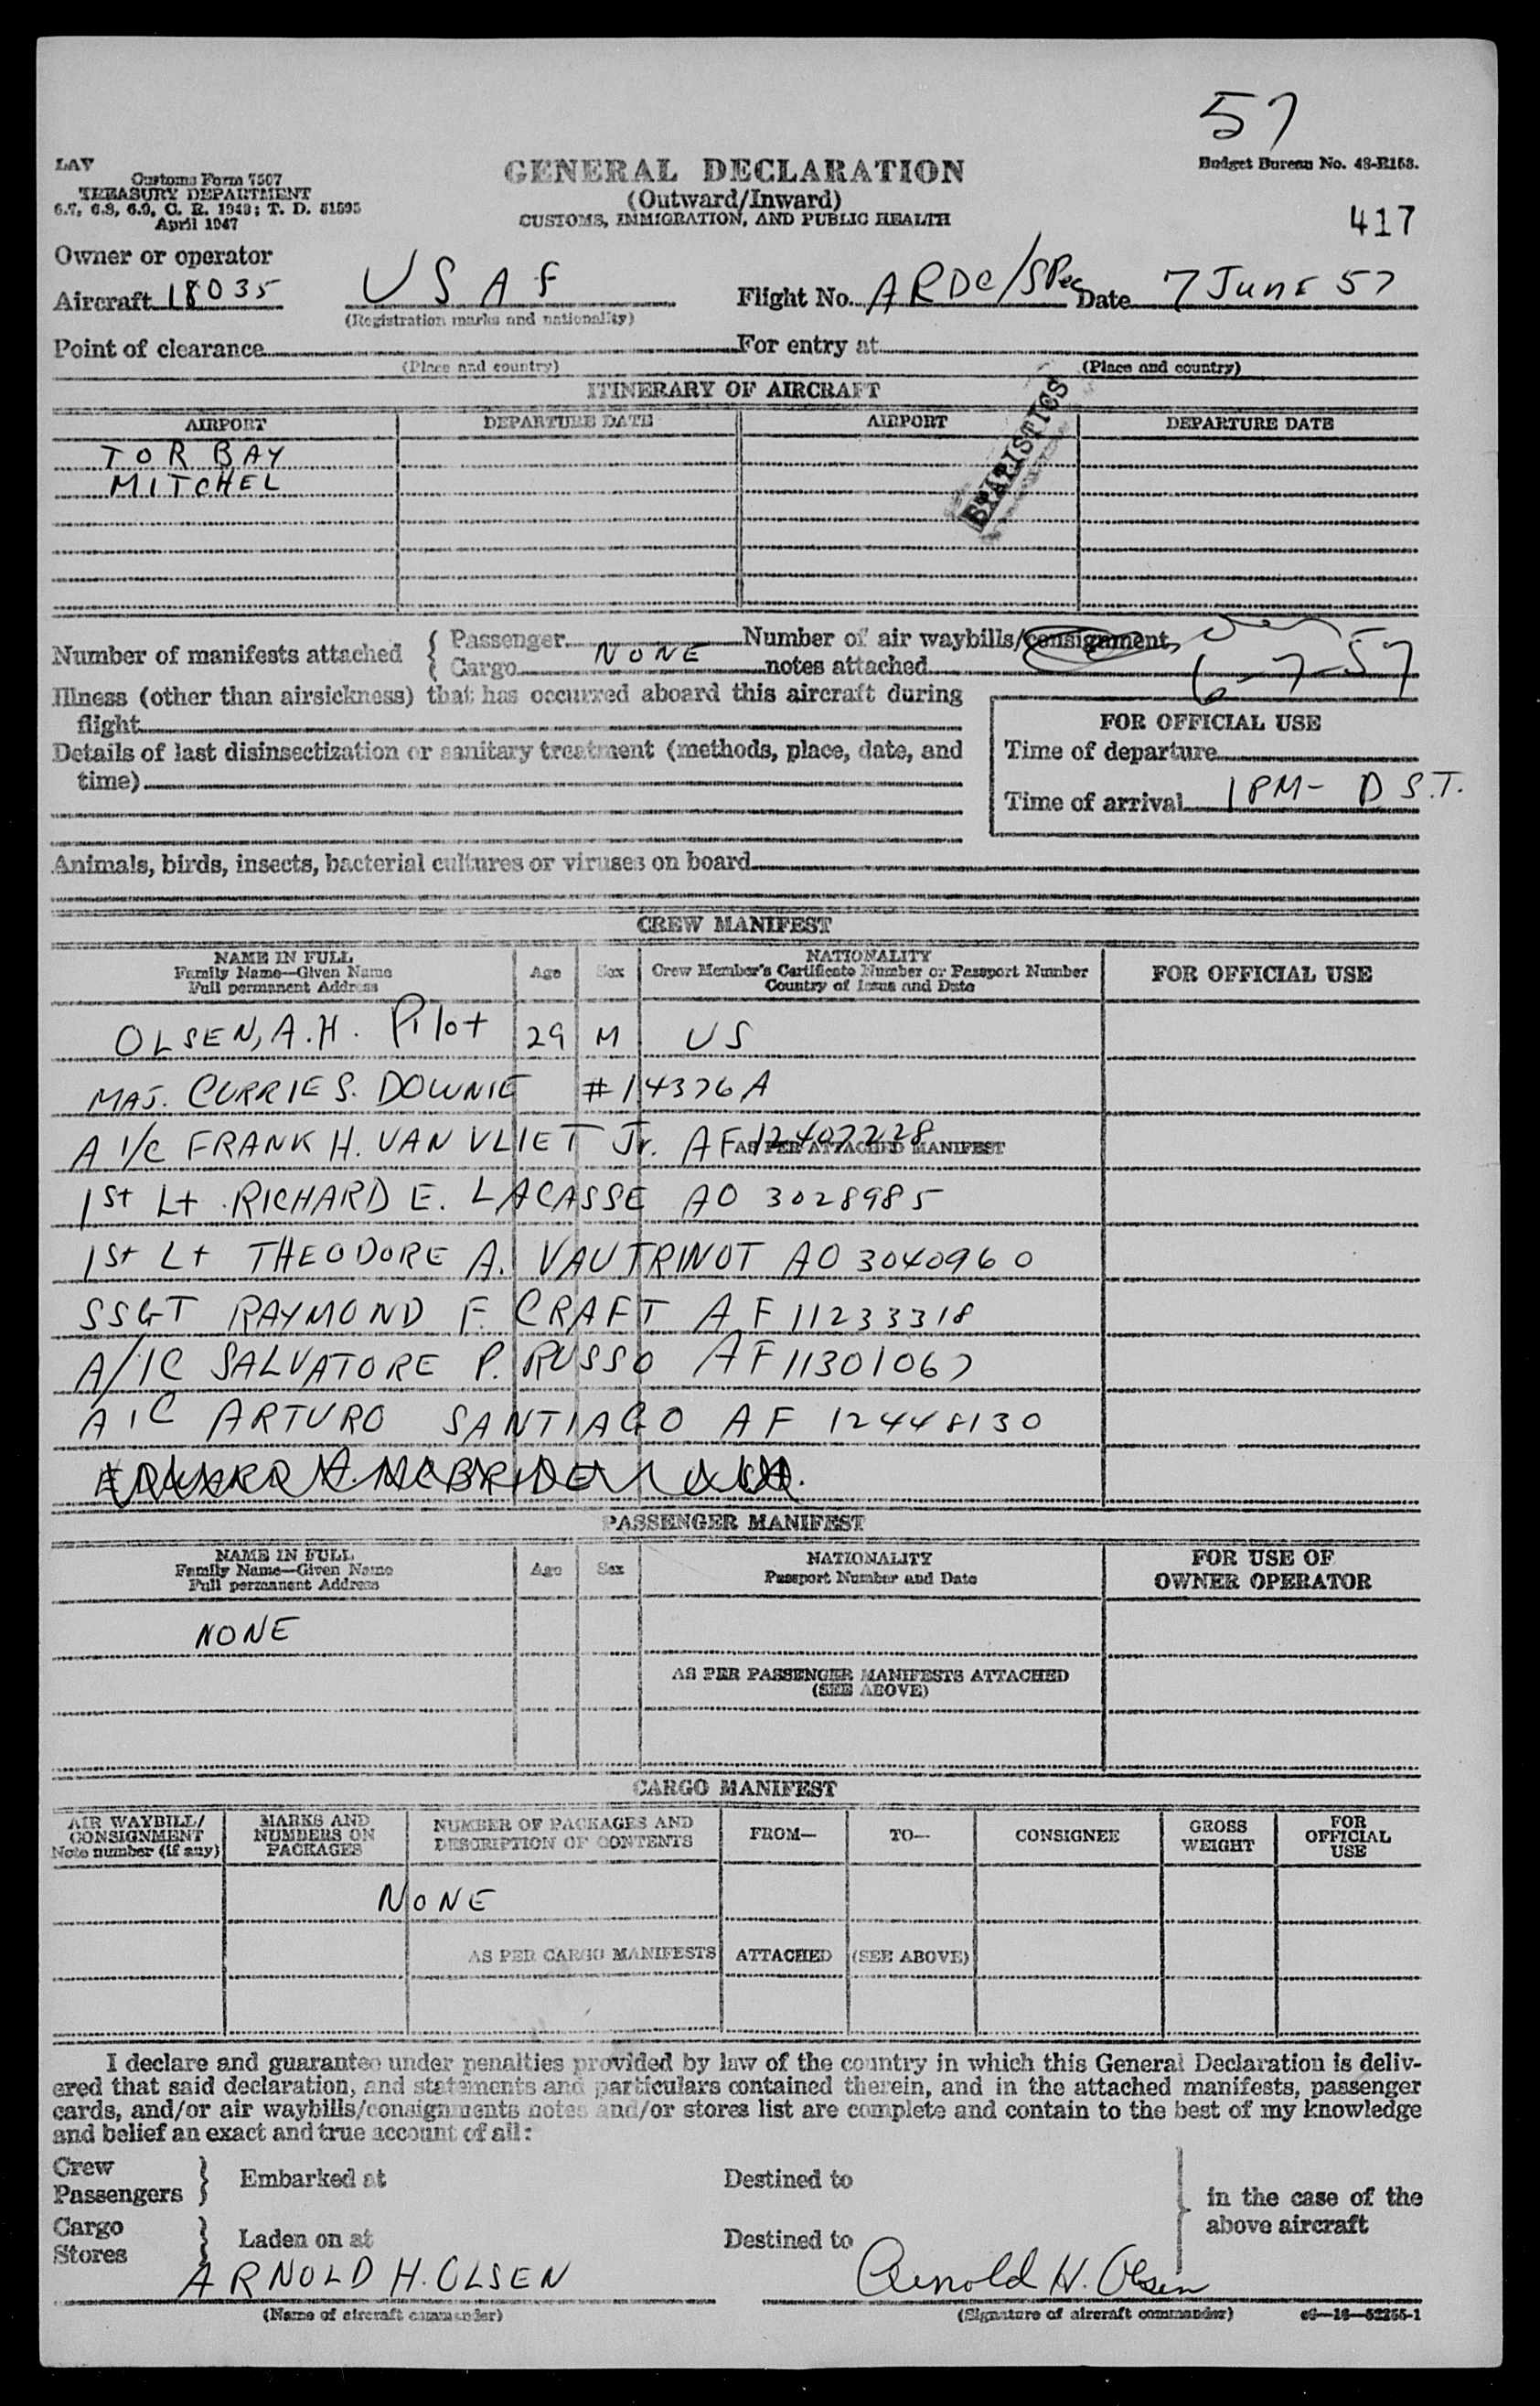 57
LAV
Customs Form 7507
TREASURY DEPARTMENT
6.7, 6.8, 6.9, C. R. 1943; T. D. 51595
April 1947
GENERAL DECLARATION
(Outward/Inward)
CUSTOMS, IMMIGRATION, AND PUBLIC HEALTH
Budget Bureau No. 43-R153.
417
Owner or operator
Aircraft 18035 USAF Flight No. ARDC/SPec Date 7 June 57
(Registration marks and nationality)
Point of clearance For entry at
(Place and country) (Place and country)
ITINERARY OF AIRCRAFT
AIRPORT DEPARTURE DATE AIRPORT DEPARTURE DATE
TOR BAY
MITCHEL
STATISTICS
Number of manifests attached { Passenger Number of air waybills/consignment
Cargo NONE notes attached
6-7-57
Illness (other than airsickness) that has occurred aboard this aircraft during
flight
Details of last disinsectization or sanitary treatment (methods, place, date, and
time)
FOR OFFICIAL USE
Time of departure
Time of arrival 1 PM- D S.T.
Animals, birds, insects, bacterial cultures or viruses on board
CREW MANIFEST
NAME IN FULL
Family Name—Given Name
Full permanent Address
Age Sex
NATIONALITY
Crew Member's Certificate Number or Passport Number
Country of Issue and Date
FOR OFFICIAL USE
OLSEN, A.H. Pilot 29 M US
MAJ. CURRIE S. DOWNIE #14376A
A 1/C FRANK H. VAN VLIET Jr. AF 12407228
AS PER ATTACHED MANIFEST
1st Lt RICHARD E. LACASSE AO 3028985
1st Lt THEODORE A. VAUTRINOT AO 3040960
SSGT RAYMOND F. CRAFT AF 11233318
A/1C SALVATORE P. RUSSO AF 11301067
A1C ARTURO SANTIAGO AF 12448130
PASSENGER MANIFEST
NAME IN FULL
Family Name—Given Name
Full permanent Address
Age Sex
NATIONALITY
Passport Number and Date
FOR USE OF
OWNER OPERATOR
NONE
AS PER PASSENGER MANIFESTS ATTACHED
(SEE ABOVE)
CARGO MANIFEST
AIR WAYBILL/
CONSIGNMENT
Note number (if any)
MARKS AND
NUMBERS ON
PACKAGES
NUMBER OF PACKAGES AND
DESCRIPTION OF CONTENTS
FROM— TO— CONSIGNEE
GROSS
WEIGHT
FOR
OFFICIAL
USE
NONE
AS PER CARGO MANIFESTS ATTACHED (SEE ABOVE)
I declare and guarantee under penalties provided by law of the country in which this General Declaration is deliv-
ered that said declaration, and statements and particulars contained therein, and in the attached manifests, passenger
cards, and/or air waybills/consignments notes and/or stores list are complete and contain to the best of my knowledge
and belief an exact and true account of all:
Crew
Passengers } Embarked at Destined to
in the case of the
above aircraft
Cargo
Stores } Laden on at Destined to
ARNOLD H. OLSEN Arnold H. Olsen
(Name of aircraft commander) (Signature of aircraft commander) c6—16—52255-1